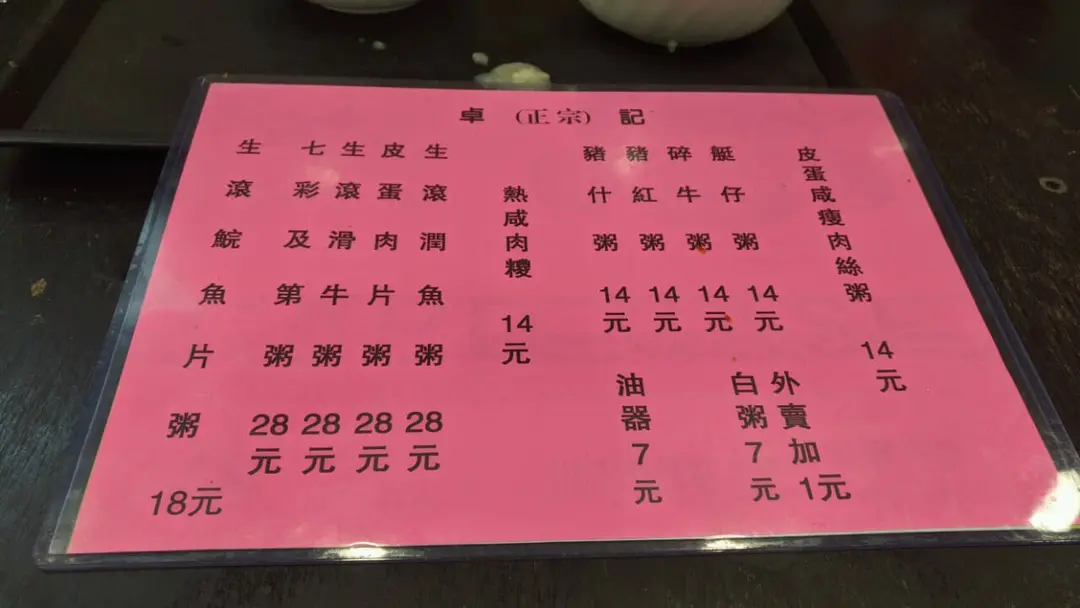 卓(正宗)記
皮蛋咸瘦肉絲粥 14元
艇仔粥 14元
碎牛粥 14元
豬紅粥 14元
豬什粥 14元
外賣加1元
白粥 7元
油器 7元
熱咸肉糭 14元
生滾潤魚粥 28元
皮蛋肉片粥 28元
生滾滑牛粥 28元
七彩及第粥 28元
生滾鯇魚片粥 18元